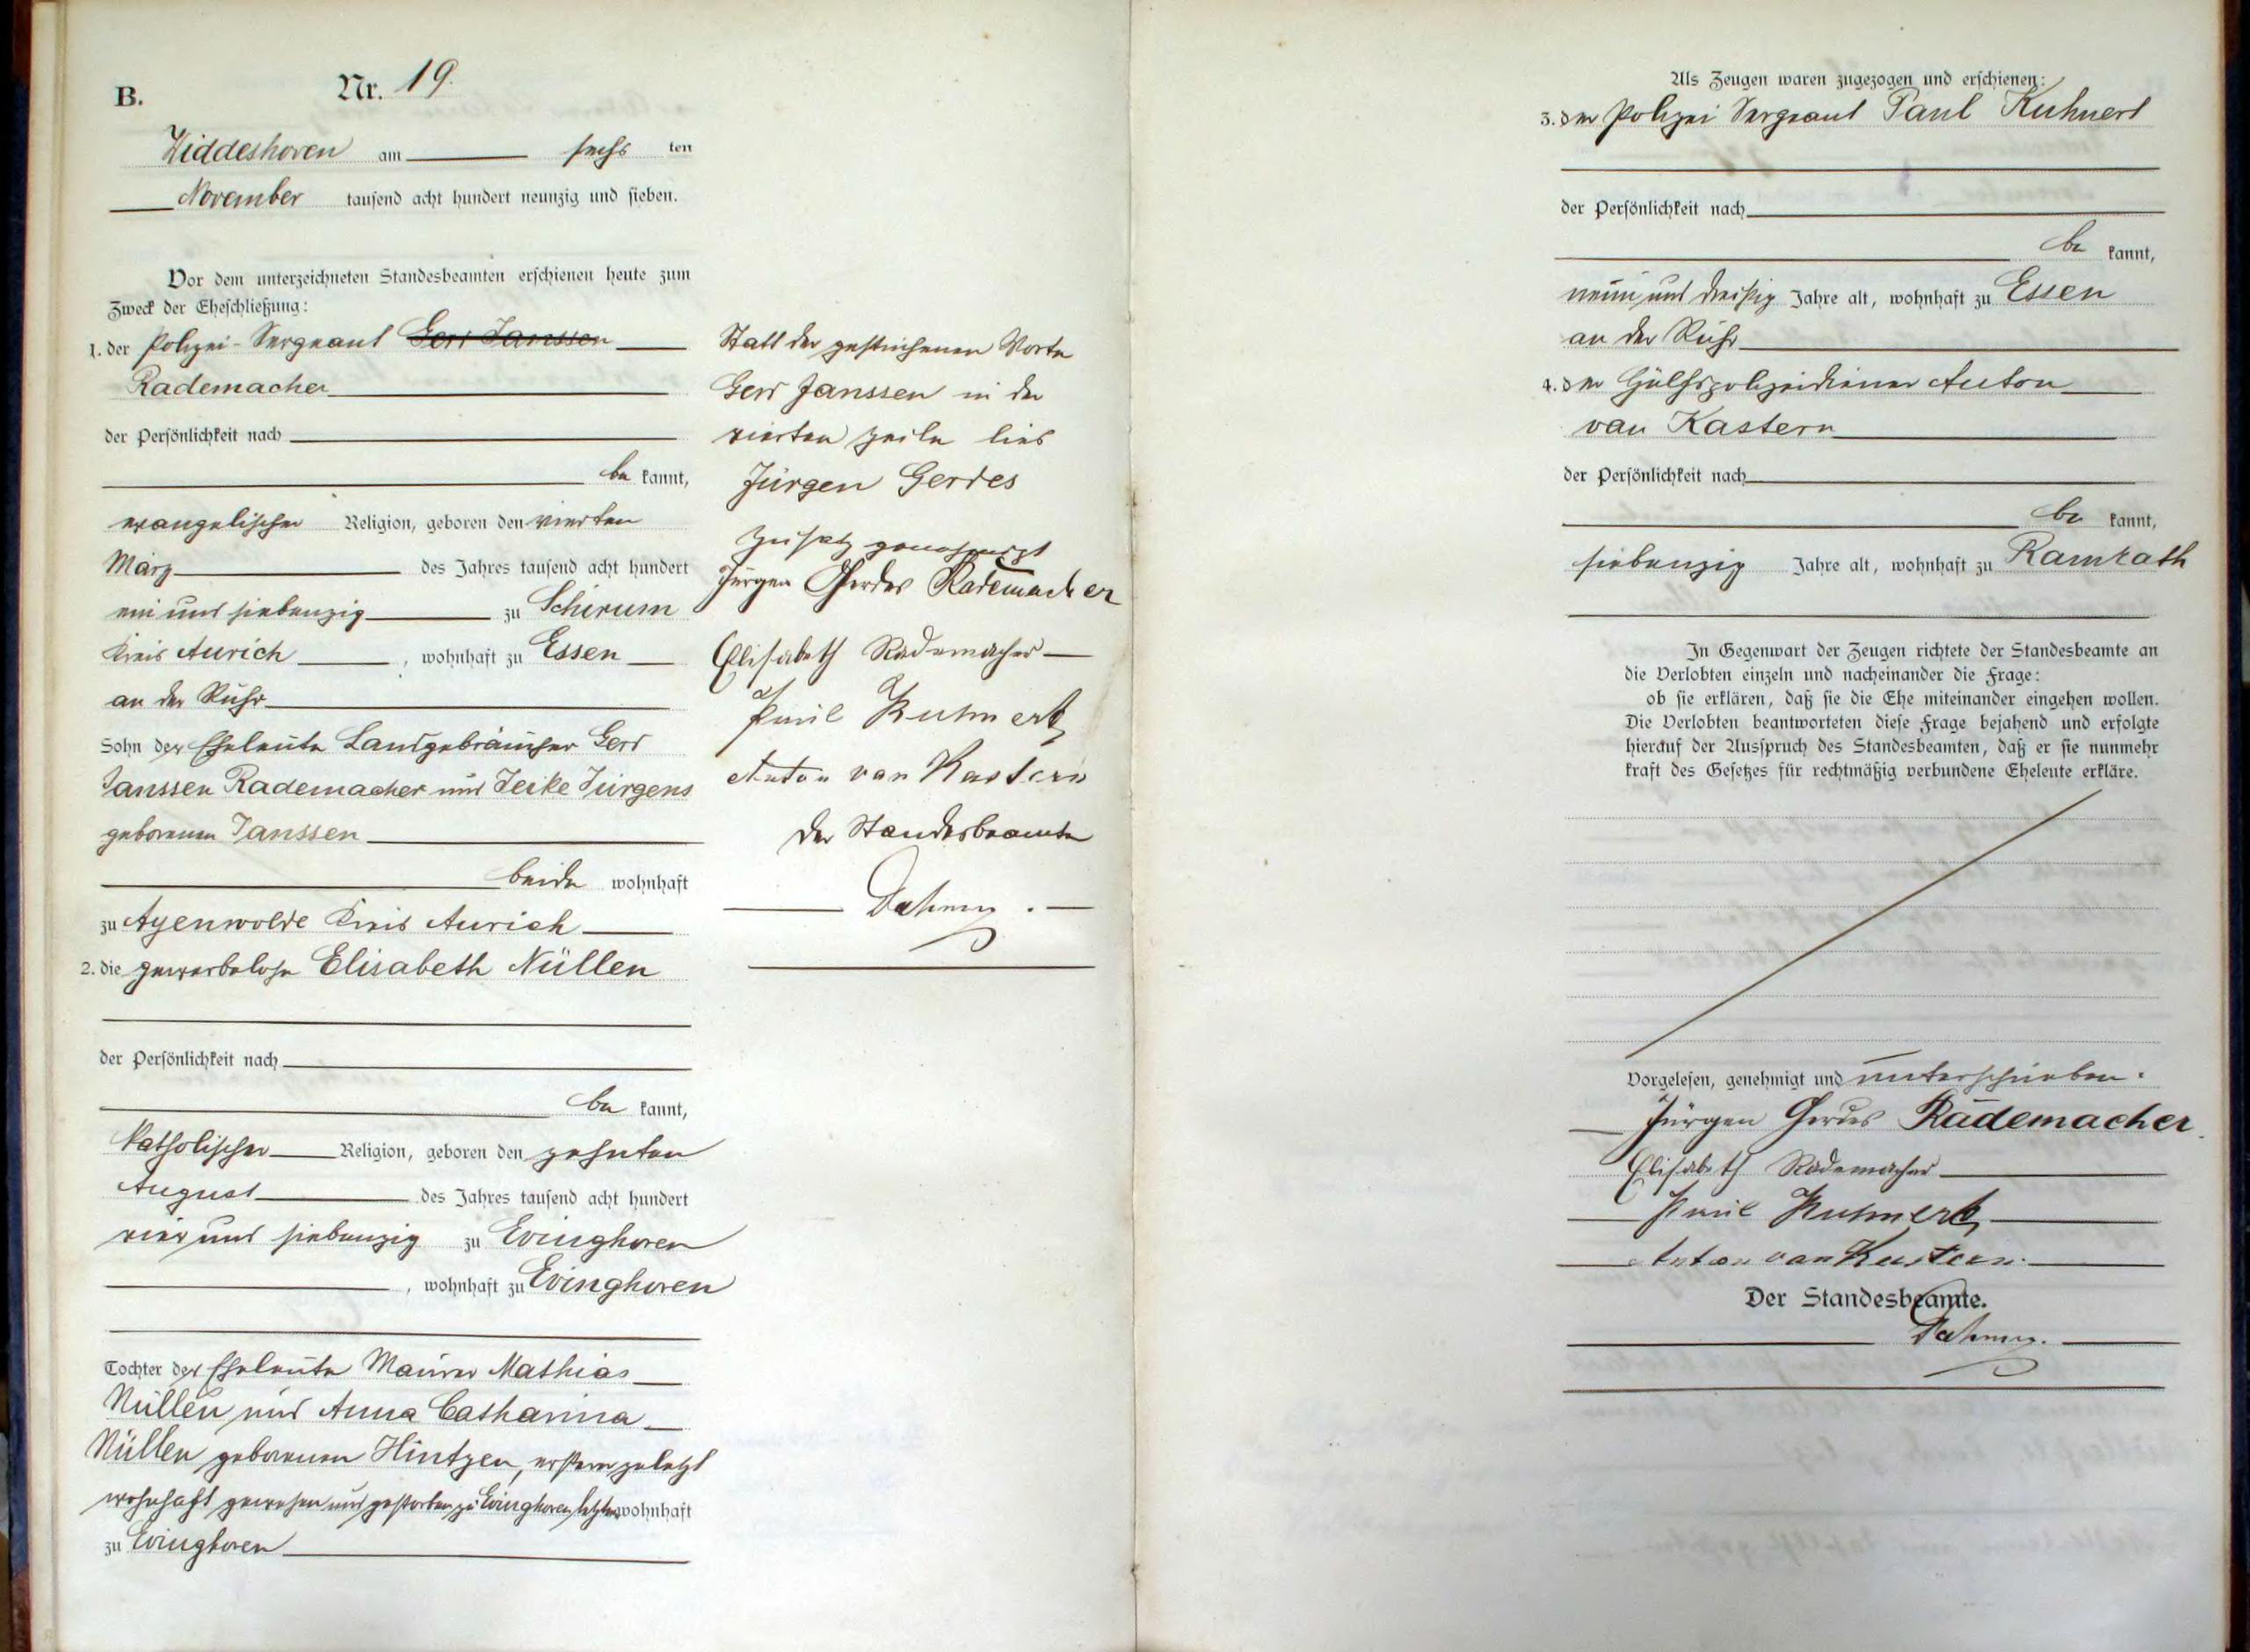 B. Nr. 19.
Widdeshoven am sechsten
November tausend acht hundert neunzig und sieben.
Vor dem unterzeichneten Standesbeamten erschienen heute zum
Zweck der Eheschließung:
1. der Polizei-Sergeant Gerd Janssen
Rademacher
der Persönlichkeit nach
be kannt,
evangelischer Religion, geboren den vierten
März des Jahres tausend acht hundert
ein und siebenzig zu Schirum
Kreis Aurich, wohnhaft zu Essen
an der Ruhr
Sohn der Eheleute Landgebräucher Gerd
Janssen Rademacher und Teike Jürgens
geborenen Janssen
beide wohnhaft
zu Ayenwolde Kreis Aurich
2. die gewerbelose Elisabeth Nüllen
der Persönlichkeit nach
be kannt,
katholischer Religion, geboren den zehnten
August des Jahres tausend acht hundert
vier und siebenzig zu Evinghoven
, wohnhaft zu Evinghoven
Tochter der Eheleute Maurer Mathias
Nüllen und Anna Catharina
Nüllen geborenen Hintzen, erstere zuletzt
wohnhaft gewesen und gestorben zu Evinghoven, letztere wohnhaft
zu Evinghoven
Statt der gestrichenen Worte
Gerd Janssen in der
vierten Zeile lies
Jürgen Gerdes
Zusatz genehmigt
Jürgen Gerdes Rademacher
Elisabeth Rademacher
Paul Kuhnert
Anton van Kastern
Der Standesbeamte
Als Zeugen waren zugezogen und erschienen:
3. der Polizei Sergeant Paul Kuhnert
der Persönlichkeit nach
be kannt,
neun und dreißig Jahre alt, wohnhaft zu Essen
an der Ruhr
4. der Hülfspolizeidiener Anton
van Kastern
der Persönlichkeit nach
be kannt,
siebenzig Jahre alt, wohnhaft zu Ramrath
In Gegenwart der Zeugen richtete der Standesbeamte an
die Verlobten einzeln und nacheinander die Frage:
ob sie erklären, daß sie die Ehe miteinander eingehen wollen.
Die Verlobten beantworteten diese Frage bejahend und erfolgte
hierauf der Ausspruch des Standesbeamten, daß er sie nunmehr
kraft des Gesetzes für rechtmäßig verbundene Eheleute erkläre.
Vorgelesen, genehmigt und unterschrieben.
Jürgen Gerdes Rademacher
Elisabeth Rademacher
Paul Kuhnert
Anton van Kastern.
Der Standesbeamte.